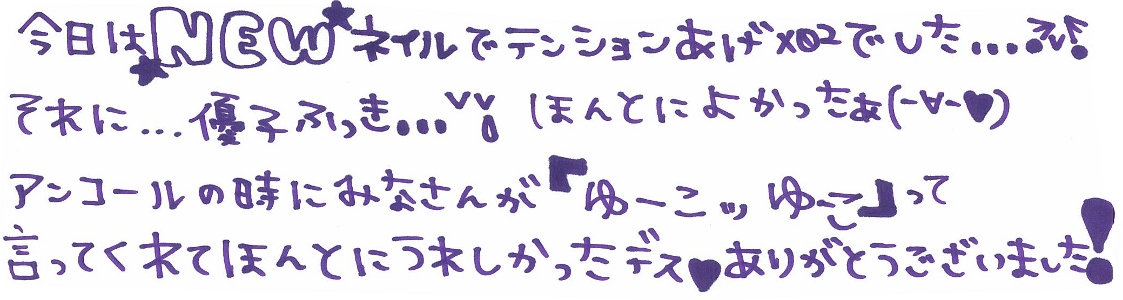 今日は★NEW★ネイルでテンションあげ×02でした…♪
それに…優子ふっき…ほんとによかったぁ(-∀-♥)
アンコールの時にみなさんが『ゆーこッ ゆーこ』って
言ってくれてほんとにうれしかったデス♥ありがとうございました!